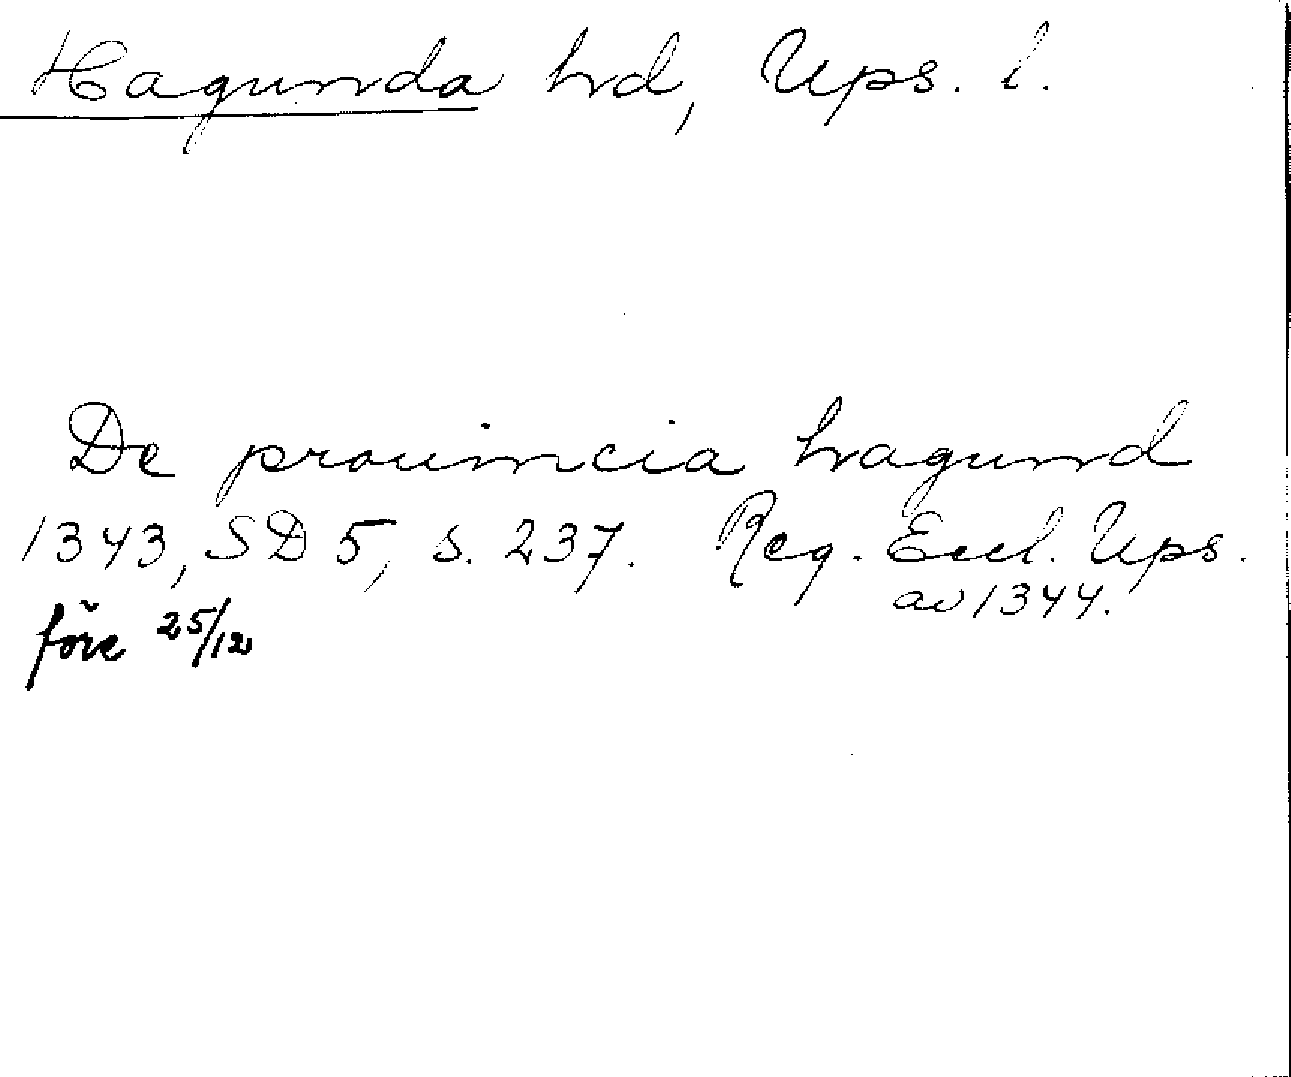 Hagunda hd, Ups. l.
De prouincia hagund
1343, SD 5, s. 237. Reg. Eccl. Ups.
av 1344.
före 25/12